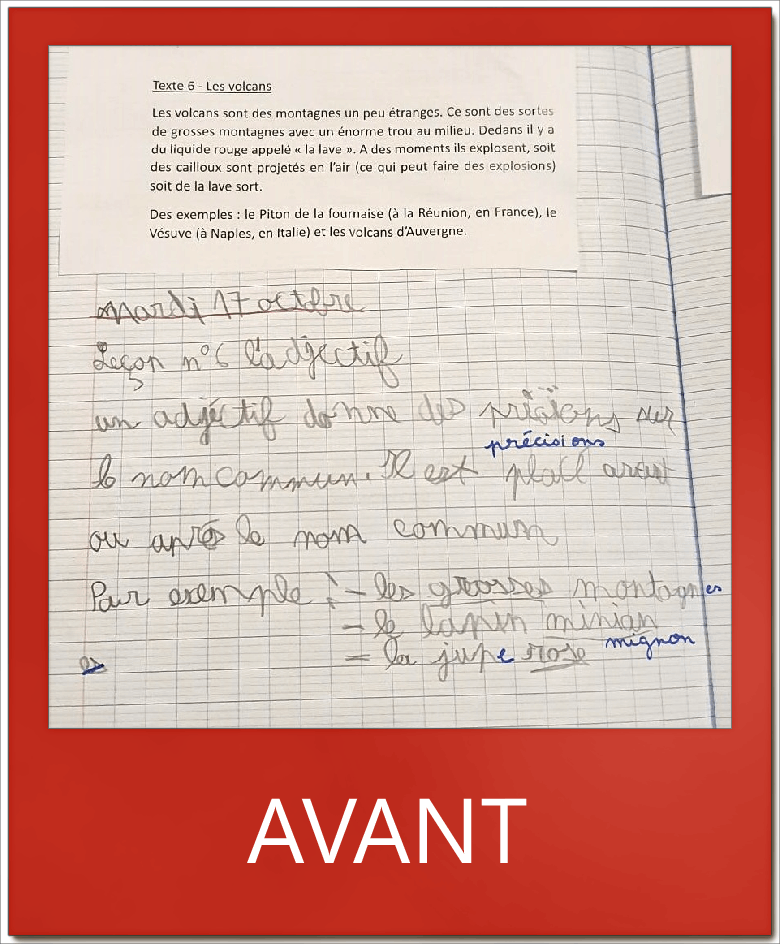 Texte 6 - Les volcans
Les volcans sont des montagnes un peu étranges. Ce sont des sortes
de grosses montagnes avec un énorme trou au milieu. Dedans il y a
du liquide rouge appelé « la lave ». A des moments ils explosent, soit
des cailloux sont projetés en l'air (ce qui peut faire des explosions)
soit de la lave sort.
Des exemples : le Piton de la fournaise (à la Réunion, en France), le
Vésuve (à Naples, en Italie) et les volcans d'Auvergne.
Mardi 17 octbre
Leçon n°6 l'adjectif
un adjectif donne des sur
précisions
le nom commun. Il est avant
ou après le nom commun
Par exemple : - les grosses montagnes
- le lapin minian
mignon
- la jupe rose
AVANT